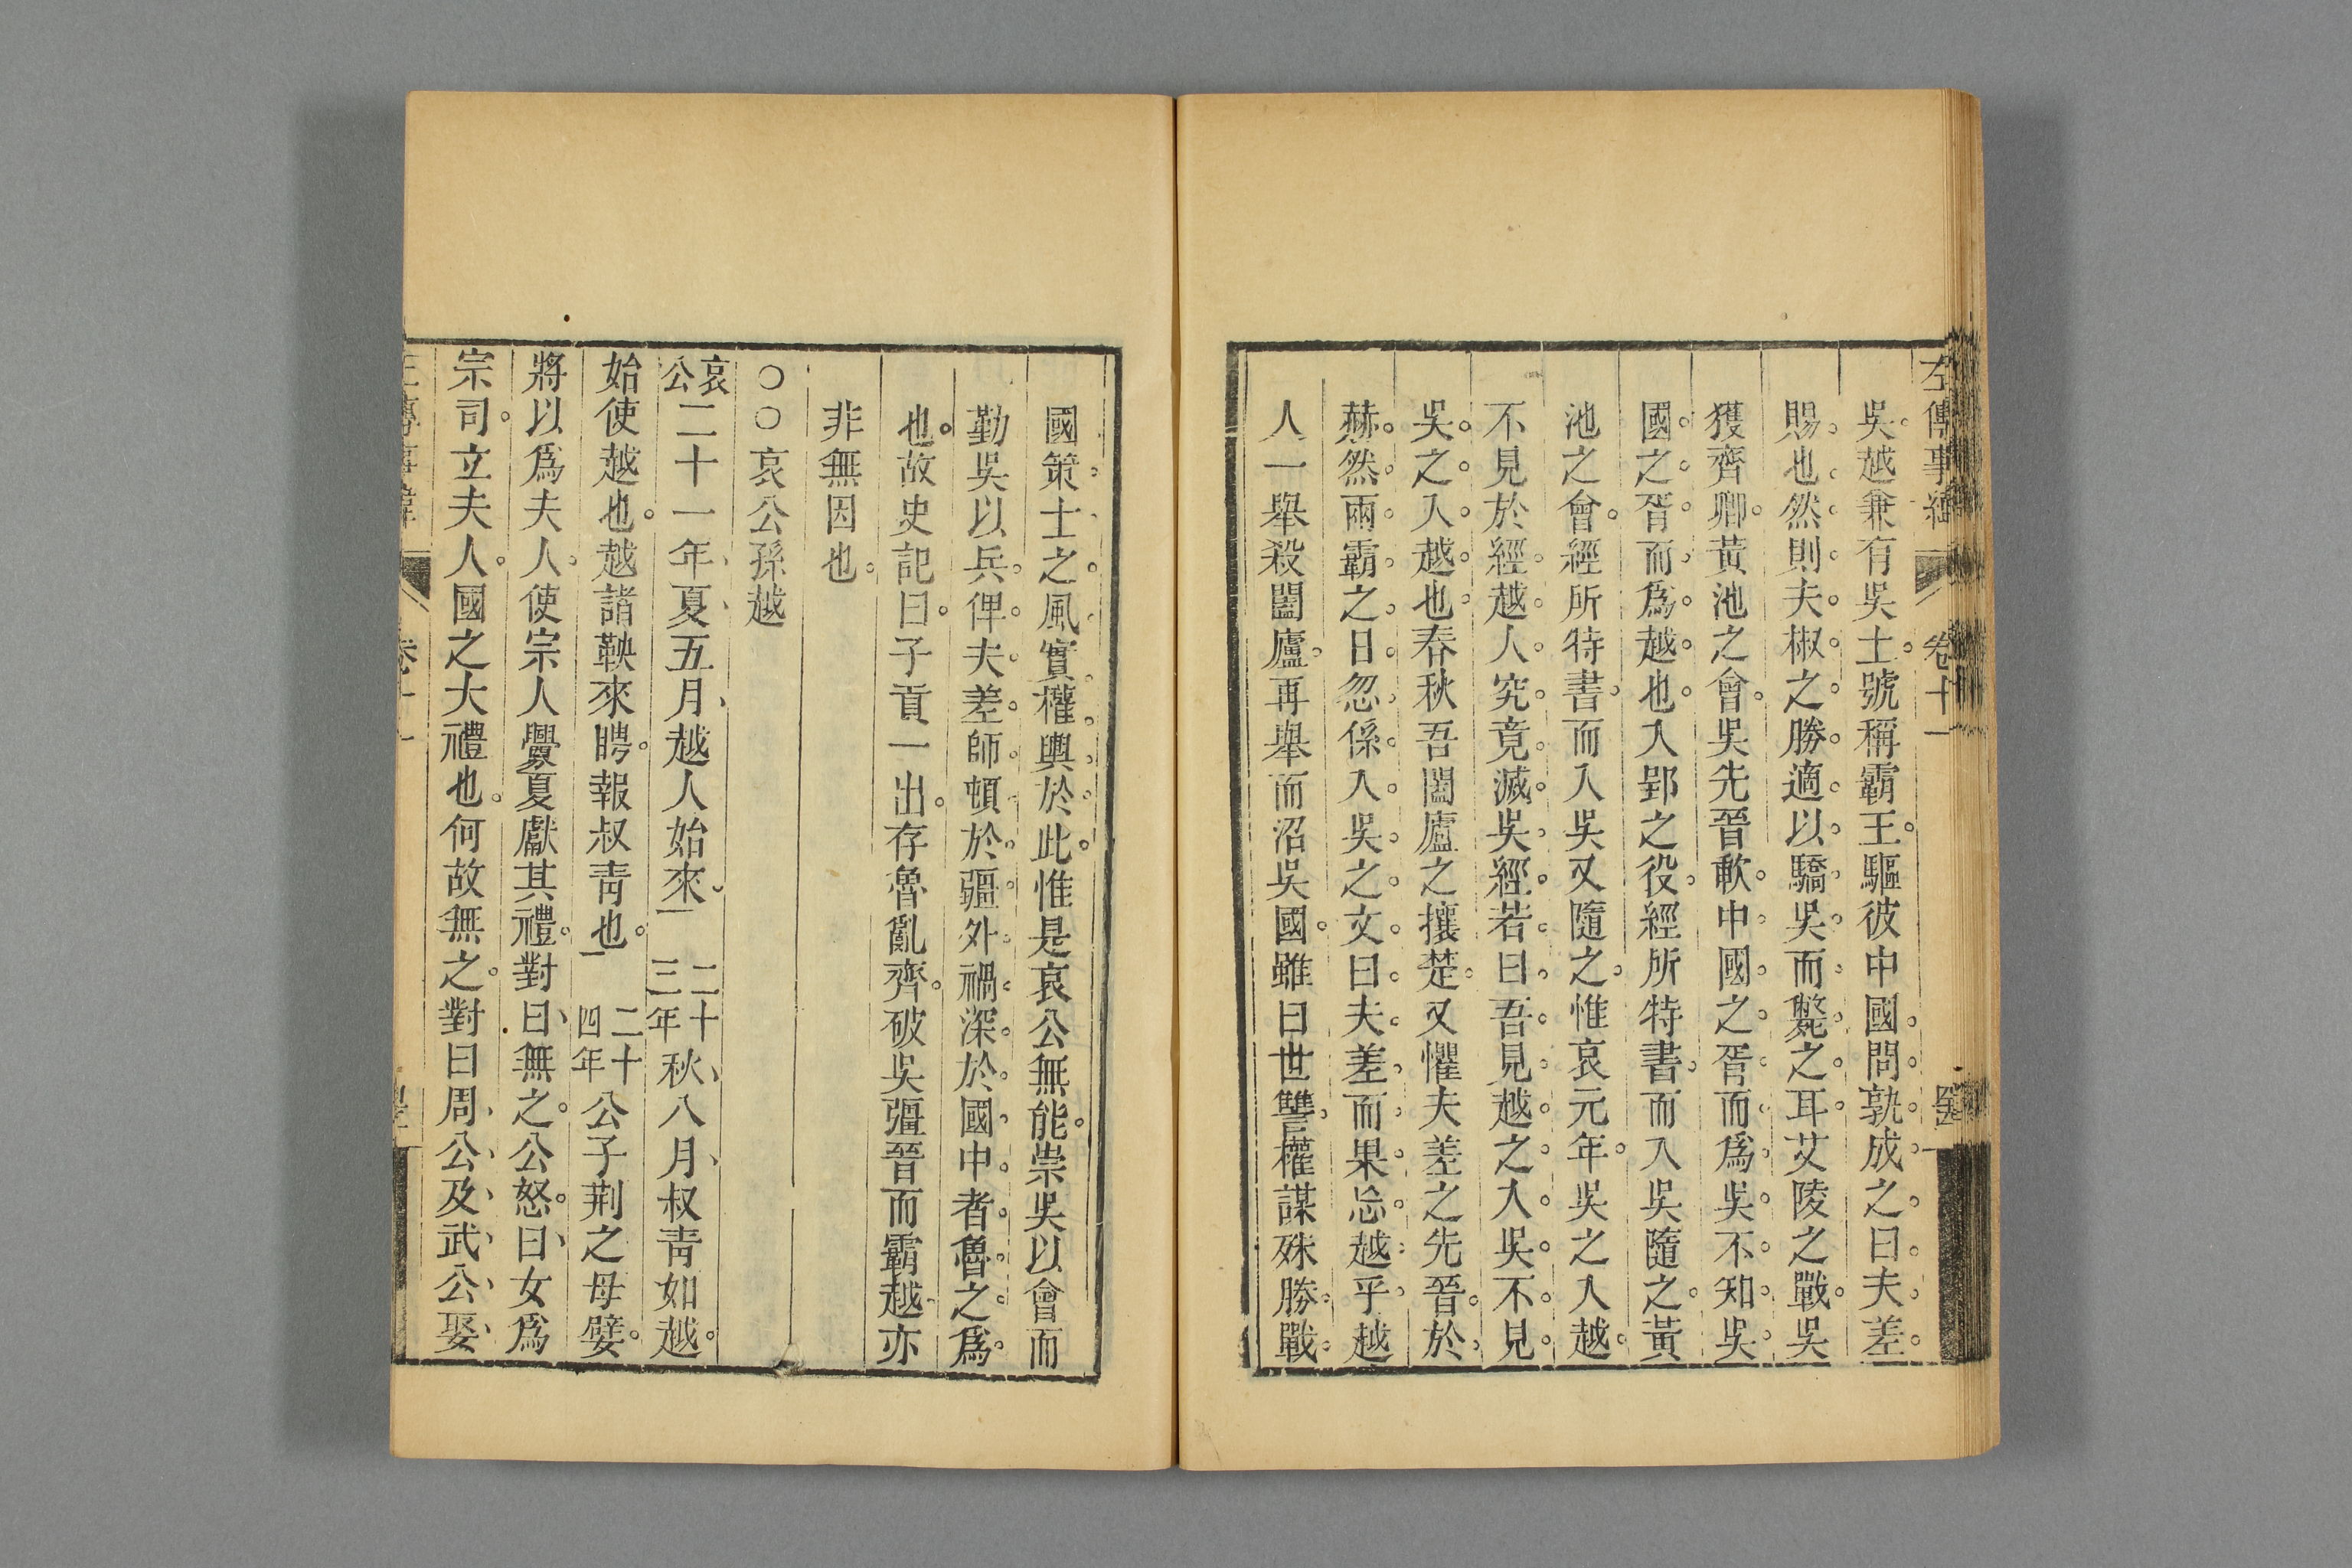 左傳事緯 卷十一
吳越兼有吳土號稱霸王驅彼中國問孰成之曰夫差
賜也然則夫椒之勝適以驕吳而斃之耳艾陵之戰吳
獲齊卿黃池之會吳先晉歃中國之胥而爲吳不知吳
國之胥而爲越也入郢之役經所特書而入吳隨之黃
池之會經所特書而入吳又隨之惟哀元年吳之入越
不見於經越人究竟滅吳經若曰吾見越之入吳不見
吳之入越也春秋吾闔廬之攘楚又懼夫差之先晉於
赫然兩霸之日忽係入吳之文曰夫差而果忘越乎越
人一舉殺闔廬再舉而沼吳國雖曰世讐權謀殊勝戰
國策士之風實權輿於此惟是哀公無能祟吳以會而
勤吳以兵俾夫差師頓於疆外禍深於國中者魯之爲
也故史記曰子貢一出存魯亂齊破吳彊晉而霸越亦
非無因也
○○哀公孫越
哀公二十一年夏五月越人始來 二十三年秋八月叔青如越
始使越也越諸鞅來聘報叔青也 二十四年公子荆之母嬖
將以爲夫人使宗人釁夏獻其禮對曰無之公怒曰女爲
宗司立夫人國之大禮也何故無之對曰周公及武公娶